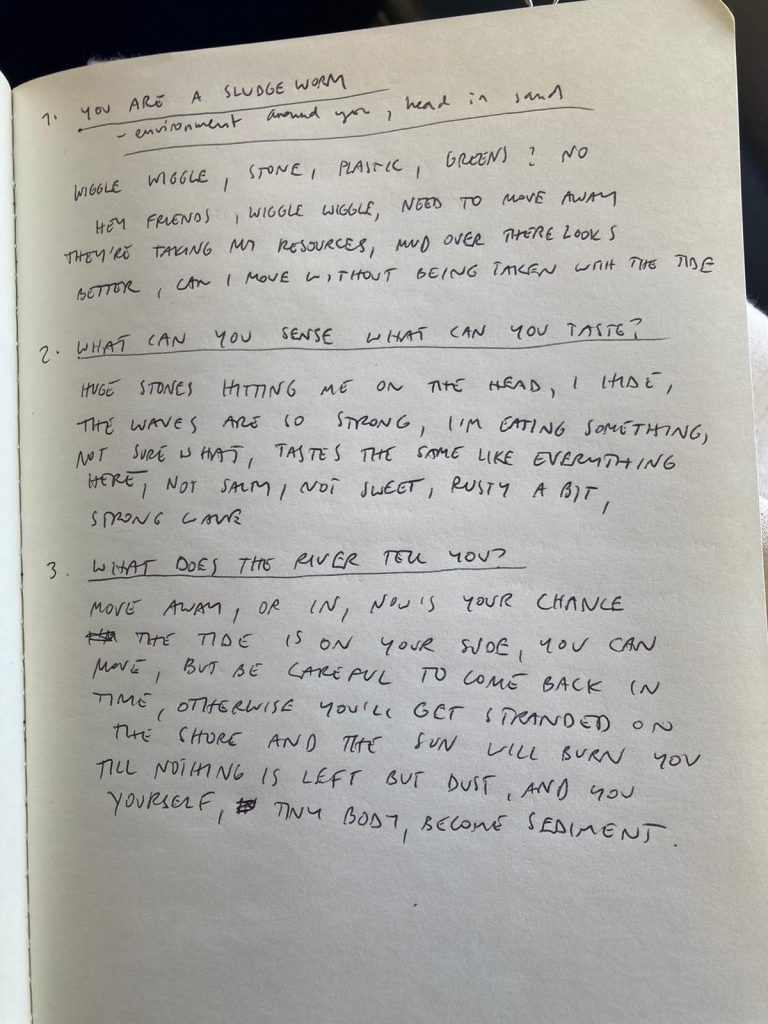 1. YOU ARE A SLUDGE WORM
- environment around you, head in sand
WIGGLE WIGGLE, STONE, PLASTIC, GREENS? NO
HEY FRIENDS, WIGGLE WIGGLE, NEED TO MOVE AWAY
THEY'RE TAKING MY RESOURCES, MUD OVER THERE LOOKS
BETTER, CAN I MOVE WITHOUT BEING TAKEN WITH THE TIDE
2. WHAT CAN YOU SENSE WHAT CAN YOU TASTE?
HUGE STONES HITTING ME ON THE HEAD, I HIDE,
THE WAVES ARE SO STRONG, I'M EATING SOMETHING,
NOT SURE WHAT, TASTES THE SAME LIKE EVERYTHING
HERE, NOT SALTY, NOT SWEET, RUSTY A BIT,
STRONG
3. WHAT DOES THE RIVER TELL YOU?
MOVE AWAY, OR IN, NOW IS YOUR CHANCE
THE TIDE IS ON YOUR SIDE, YOU CAN
MOVE, BUT BE CAREFUL TO COME BACK IN
TIME, OTHERWISE YOU'LL GET STRANDED ON
THE SHORE AND THE SUN WILL BURN YOU
TILL NOTHING IS LEFT BUT DUST, AND YOU
YOURSELF, TINY BODY, BECOME SEDIMENT.